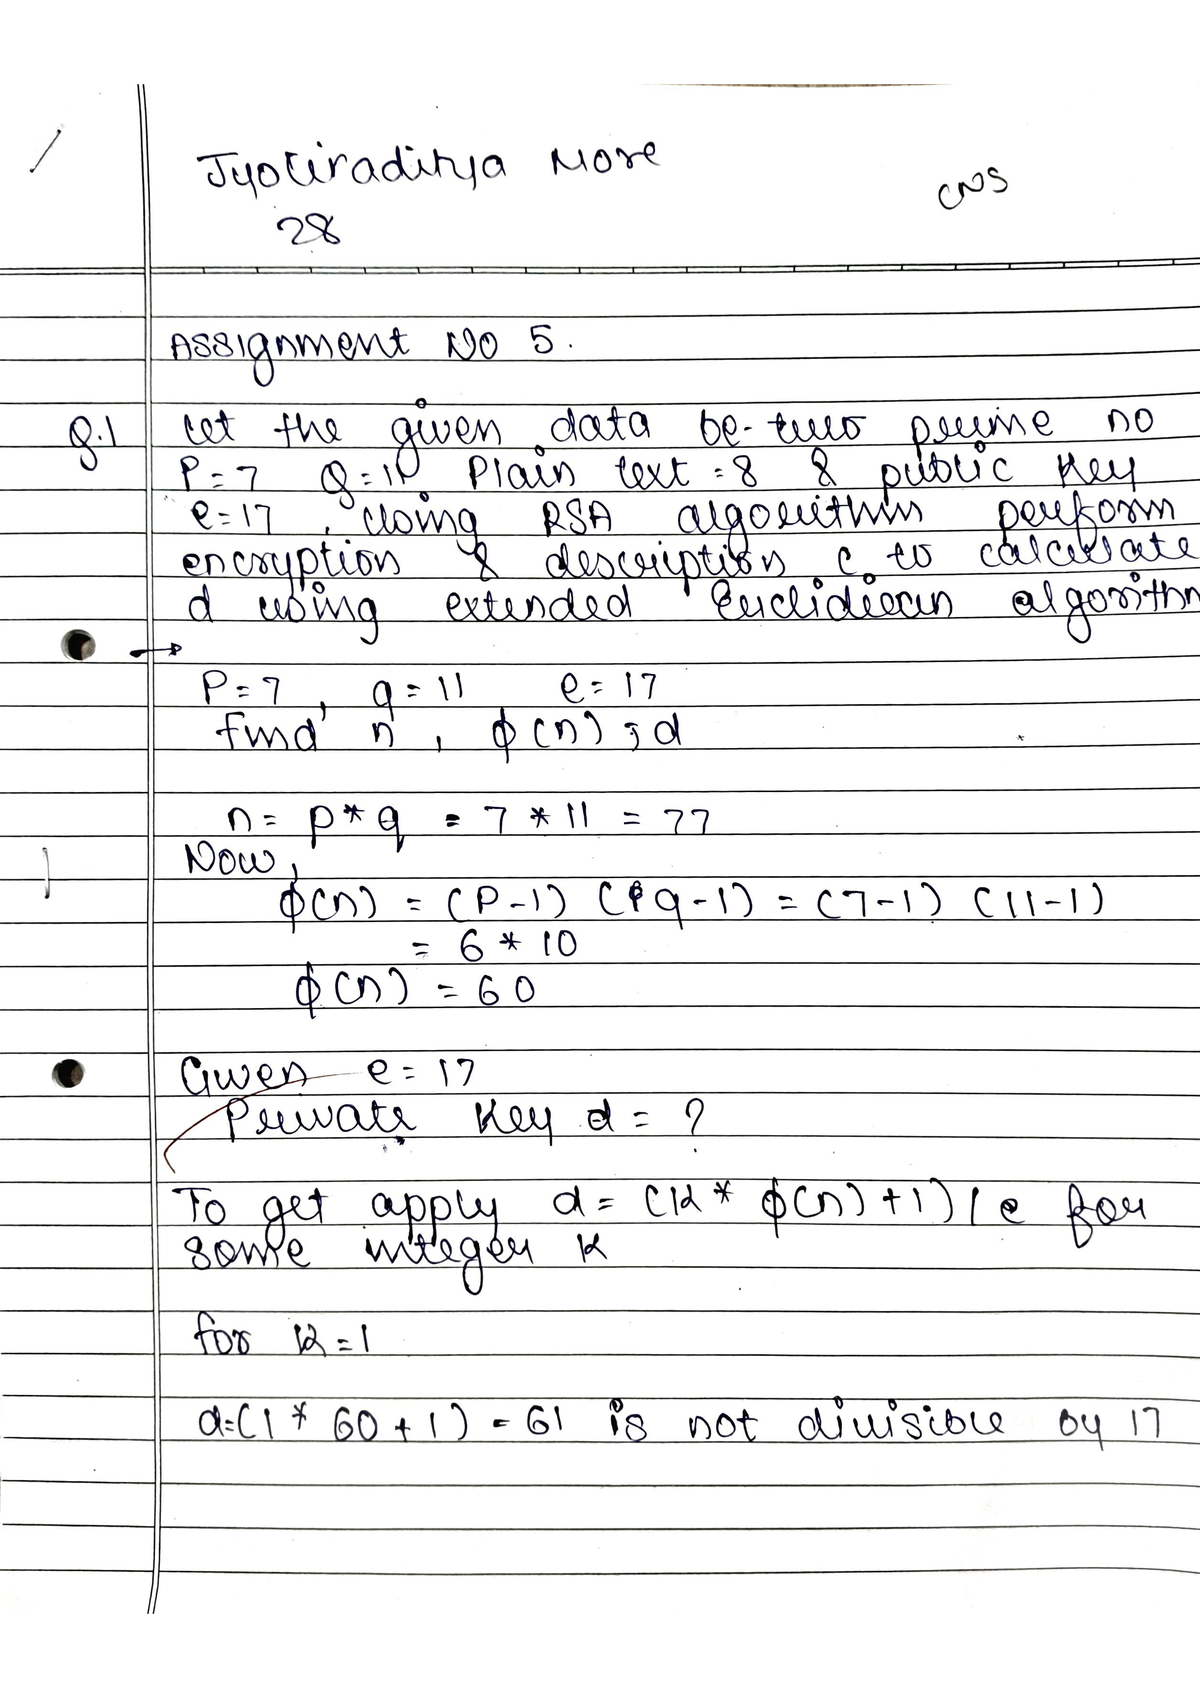 Jyotiraditya More
CNS
28
Assignment No 5.
Q.1 Let the given data be two prime no
P=7 Q=11 Plain text = 8 & public key
e=17, using RSA algorithm perform
encryption & descryiption c to calculate
d using extended Euclidiean algorithm
→
P=7, q=11 e=17
find n, φ(n), d
n= p*q = 7*11 = 77
Now,
φ(n) = (P-1) (q-1) = (7-1) (11-1)
= 6 * 10
φ(n) = 60
Given e=17
Private Key d = ?
To get apply d= (k* φ(n)+1)/e for
some integer k
for k=1
d=(1 * 60+1) = 61 is not divisible by 17